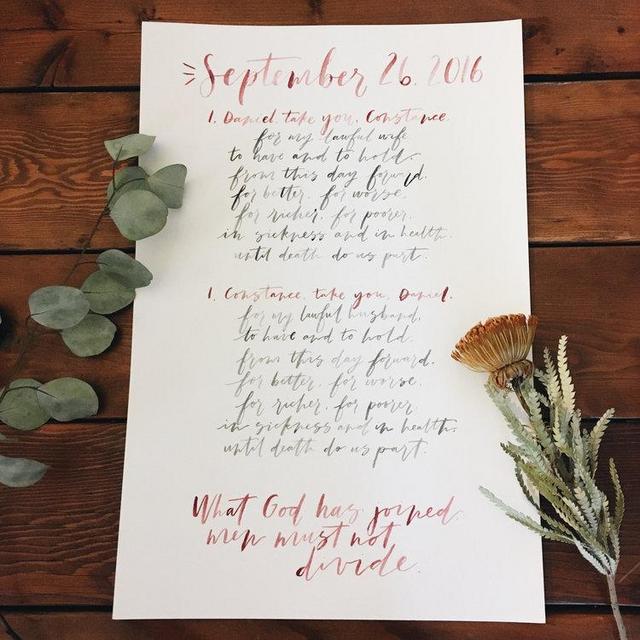 September 26. 2016
I, Daniel, take you, Constance,
for my lawful wife
to have and to hold,
from this day forward,
for better, for worse,
for richer, for poorer,
in sickness and in health,
until death do us part.
I, Constance, take you, Daniel,
for my lawful husband,
to have and to hold
from this day forward,
for better, for worse,
for richer, for poorer,
in sickness and in health,
until death do us part.
What God has joined,
men must not
divide.